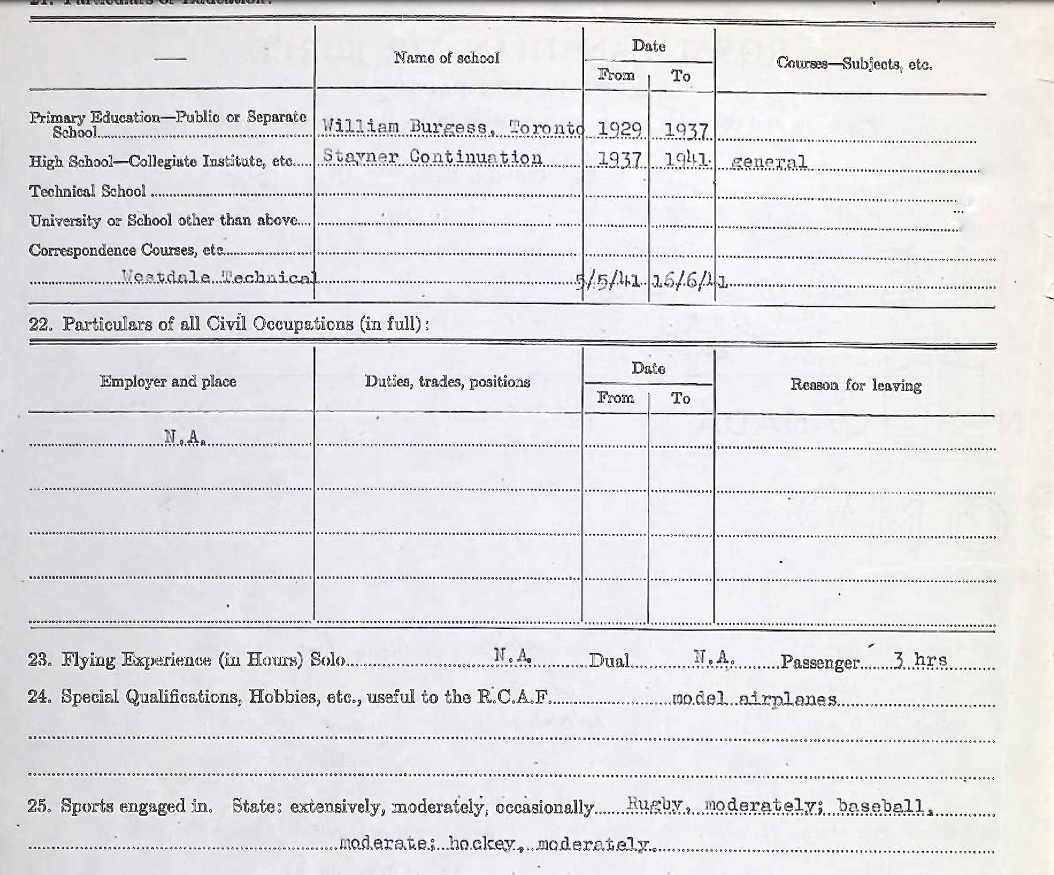 21. Particulars of Education:
— Name of school Date Courses—Subjects, etc.
From To
Primary Education—Public or Separate
School William Burgess, Toronto 1929 1937
High School—Collegiate Institute, etc. Stayner Continuation 1937 1941 general
Technical School
University or School other than above
Correspondence Courses, etc.
Westdale Technical 5/5/41 16/6/41
22. Particulars of all Civil Occupations (in full):
Employer and place Duties, trades, positions Date Reason for leaving
From To
N.A.
23. Flying Experience (in Hours) Solo N.A. Dual N.A. Passenger 3 hrs
24. Special Qualifications, Hobbies, etc., useful to the R.C.A.F. model airplanes
25. Sports engaged in. State: extensively, moderately, occasionally Rugby, moderately; baseball,
moderate; hockey, moderately.